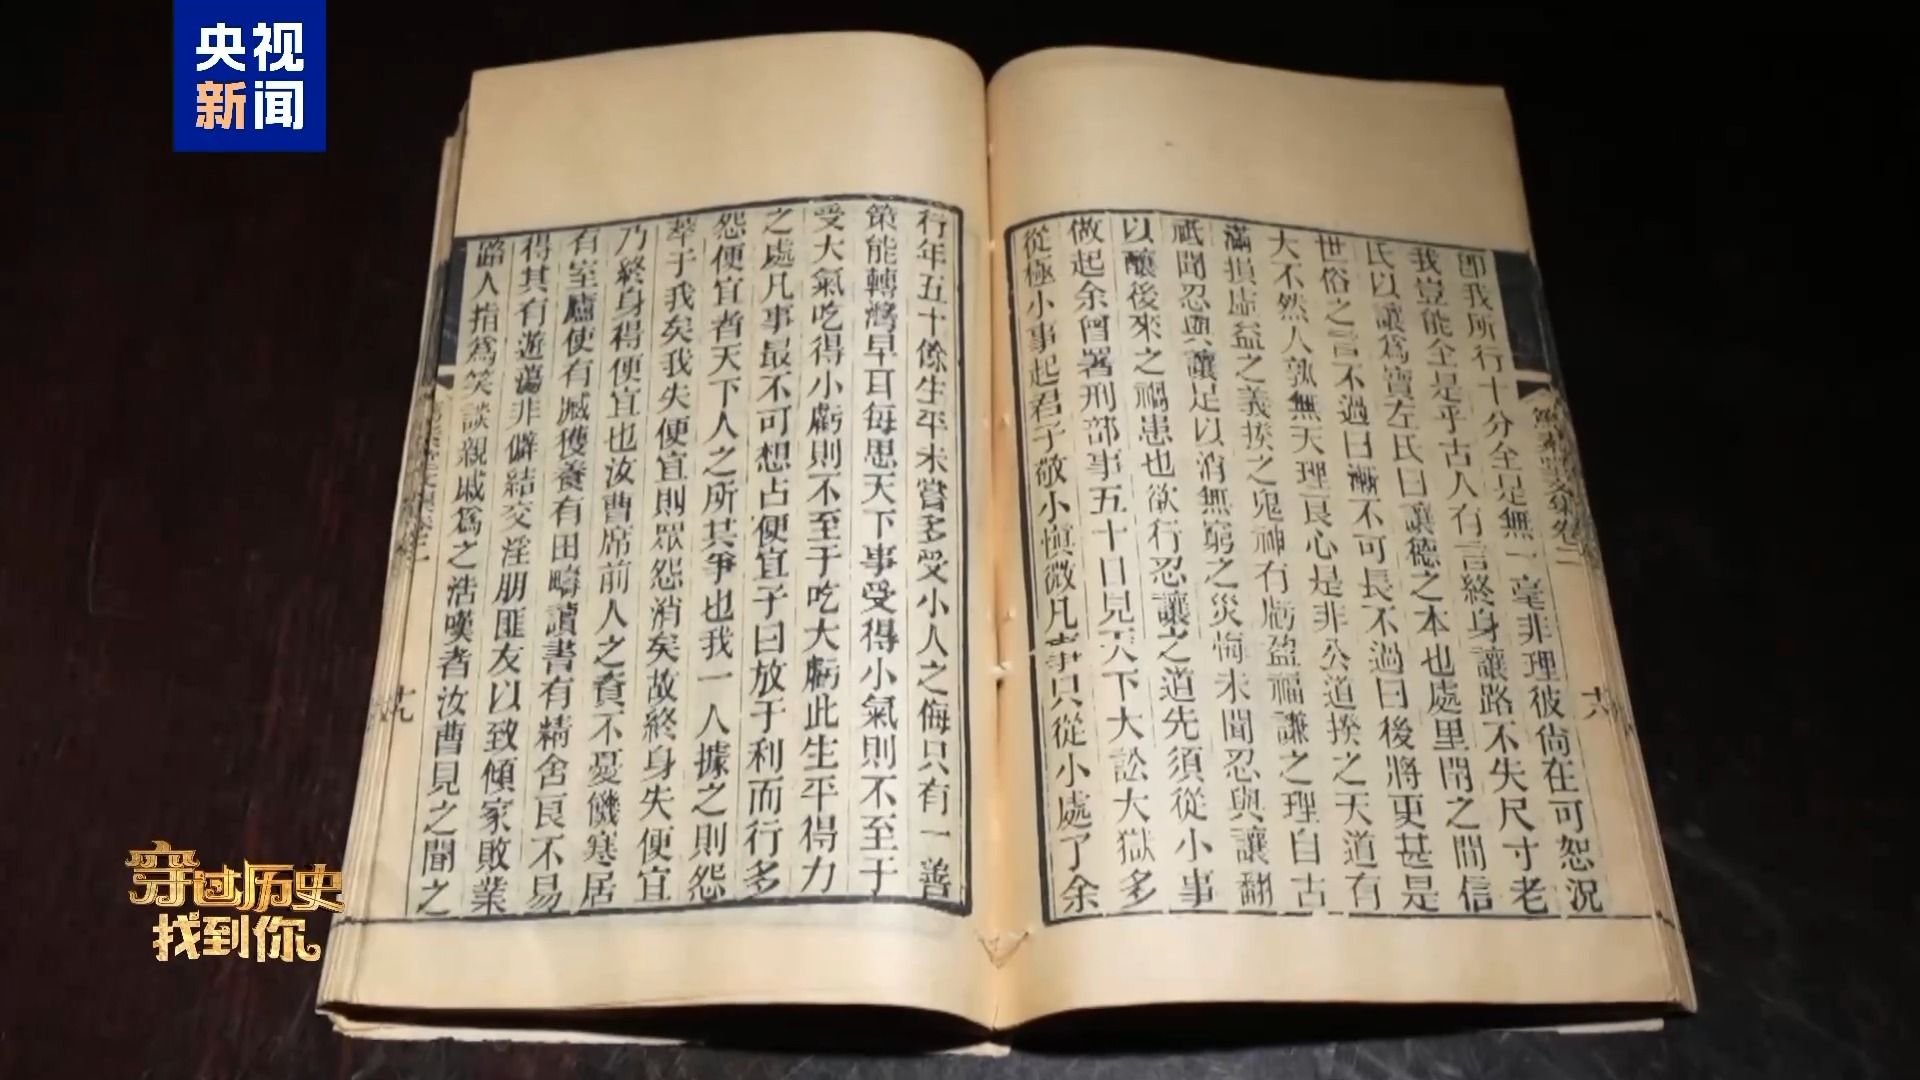 央视
新闻
即我所行十分全是無一毫非理彼尙在可恕況
我豈能全是乎古人有言終身讓路不失尺寸老
氏以讓爲寶左氏曰讓德之本也處里閈之間信
世俗之言不過曰漸不可長不過曰後將更甚是
大不然人孰無天理良心是非公道揆之天道有
滿損虛益之義揆之鬼神有虧盈福謙之理自古
祇聞忍與讓足以消無窮之災悔未聞忍與讓翻
以釀後來之禍患也欲行忍讓之道先須從小事
做起余曾署刑部事五十日見天下大訟大獄多
從極小事起君子敬小愼微凡事只從小處了余
行年五十餘生平未嘗多受小人之侮只有一善
策能轉灣早耳每思天下事受得小氣則不至于
受大氣吃得小虧則不至于吃大虧此生平得力
之處凡事最不可想占便宜子曰放于利而行多
怨便宜者天下人之所其爭也我一人據之則怨
萃于我矣我失便宜則眾怨消矣故終身失便宜
乃終身得便宜也汝曹席前人之資不憂饑寒居
有室廬使有臧獲養有田疇讀書有精舍良不易
得其有遊蕩非僻結交淫朋匪友以致傾家敗業
路人指爲笑談親戚爲之浩嘆者汝曹見之聞之
文集卷二
十九
穿过历史
找到你